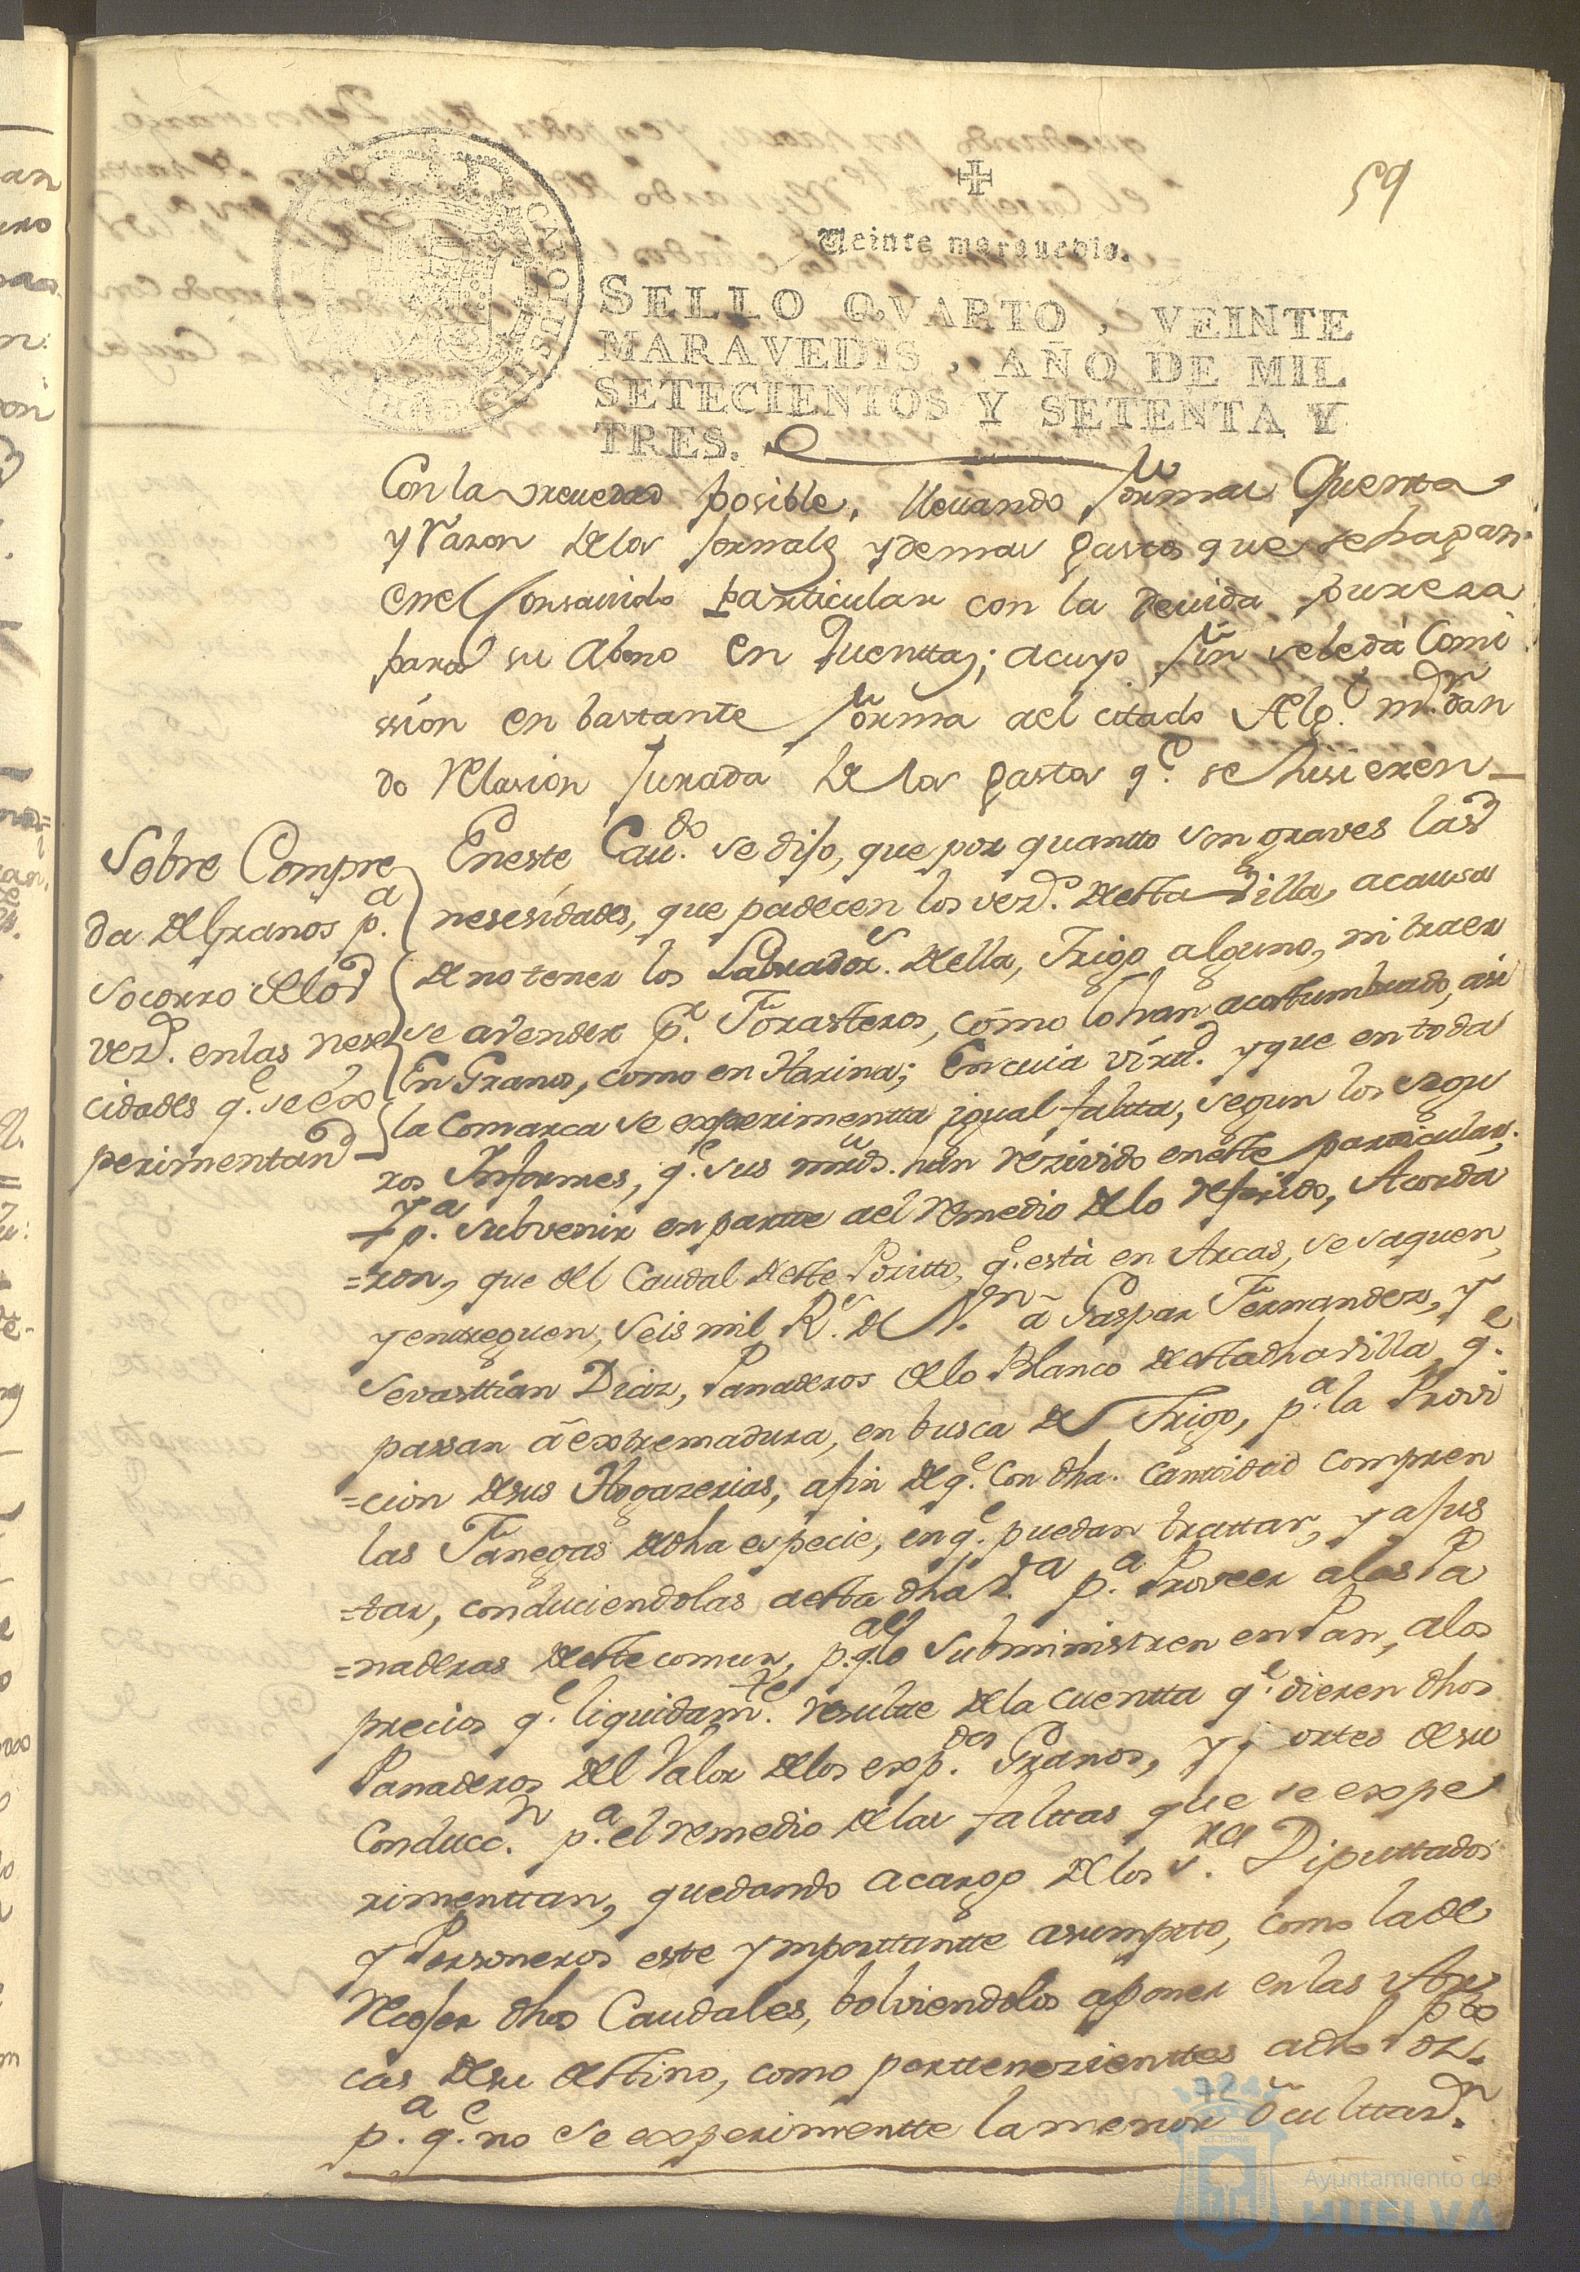 59
Veinte maravedis.
SELLO QVARTO, VEINTE
MARAVEDIS, AÑO DE MIL
SETECIENTOS Y SETENTA Y
TRES.
Con la brevedad posible, llevando formar Quenta
y Razon delos Jornales y demas gastos que se hagan
en el consavido particular con la devida puresa
para su Abono en Quenttas; a cuyo fin se le dà Comi
ssion en bastante forma al citado Alg.l m.r dan
do Relasion Jurada de los gastos q.e se hisieren
Sobre Compre
da de Granos p.a
socorro delos
vez.s en las nese
cidades q.e se ex
perimentan
En este Cau.do se dijo, que por quantto son graves las
nesesidades, que padecen los vez.s de estta Villa, a causa
de no tener los Labrador.s de ella, Trigo alguno, ni traer
se a vender p.r Forasteros, cómo lo han acostumbrado, asi
En Granos, como en Harina; En cuia virtd. y que en toda
la Comarca se experimentta igual faltta, segun los segu
ros Informes, q.e sus mrds. han rezivido en estte particular;
Y p.a subvenir en partte al remedio de lo referido, Acorda
=ron, que del Caudal de estte Poxitto, q.e està en Arcas, se saquen,
y entreguen, seis mil R.s de V.n à Gaspar Fernandez, Y
Sevasttian Diaz, Panaderos de lo Blanco de estta dha villa q.e
passan à extremadura, en busca de Trigo, p.a la Provi
=cion de sus Hogazerias, a fin de q.e con dha. canttidad compren
las Fanegas de dha especie, en q.e puedan trattar, y ajus
=tar, conduciendolas a estta dha V.a p.a Proveer a las Pa
=naderas de estte comun, p.a q.e lo subministren en Pan, a los
precios q.e liquidam.te resulte de la cuentta q.e dieren dhos
Panaderos del Valor de los exp.dos Granos, y portes de su
Conducc.n p.a el remedio de las falttas que se expe
rimenttan, quedando a cargo de los S.res Diputtados
y Personeros este ymporttantte asumptto, como la de
Recojer dhos Caudales, bolviendolos a poner en las Ar
cas de su desttino, como perttenezienttes a dho Poz.to
p.a q.e no se experimentte la menor ocultta.n
Ayuntamiento de
HUELVA